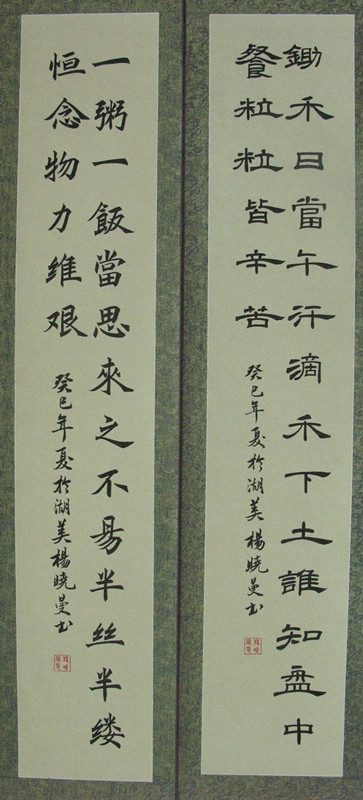 鋤禾日當午汗滴禾下土誰知盤中
餐粒粒皆辛苦
癸巳年夏於湖美楊曉曼书
一粥一飯當思來之不易半丝半缕
恒念物力維艱
癸巳年夏於湖美楊曉曼书